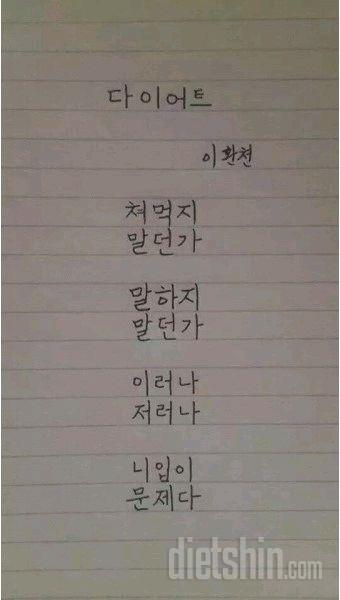 다이어트
이환천
쳐먹지
말던가
말하지
말던가
이러나
저러나
니입이
문제다
dietshin.com